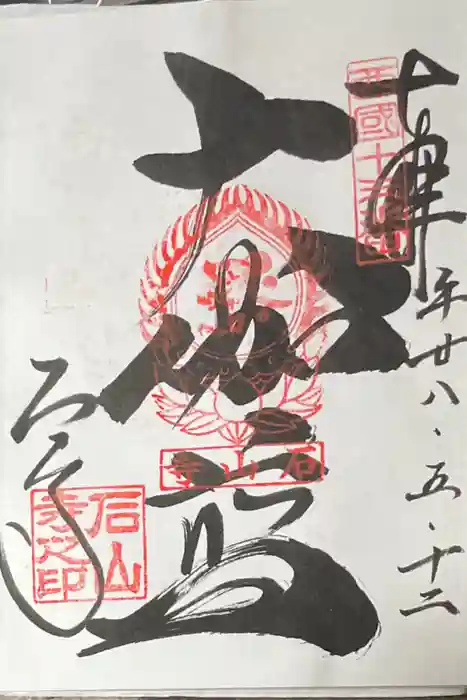 奉拝
平廿八・五・十二
西國十三番
大伽藍
石山寺
石山寺
石山寺之印